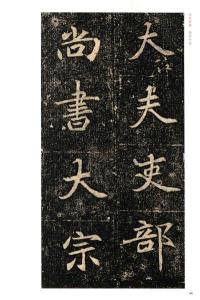 大夫吏部
尚書大宗